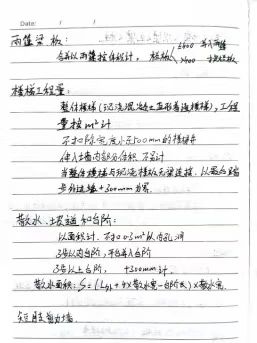 Date: / /
雨篷梁板:
合并以雨篷按体积计, 栏板 ≤400 并入雨篷
>400 按栏板
楼梯工程量:
整体楼梯(现浇混凝土直形普通楼梯), 工程
量按m²计
不扣除宽度小于500mm的楼梯井
伸入墙内部分体积不另计
当整体楼梯与现浇楼板无梁连接, 以最后踏
步外边缘+300mm为界.
散水、坡道和台阶:
以面积计. 不扣0.3m²以内孔洞
3步以内台阶, 平台并入台阶
3步以上台阶, +300mm计.
散水面积: S=(L外+4×散水宽-台阶长)×散水宽.
短肢剪力墙.